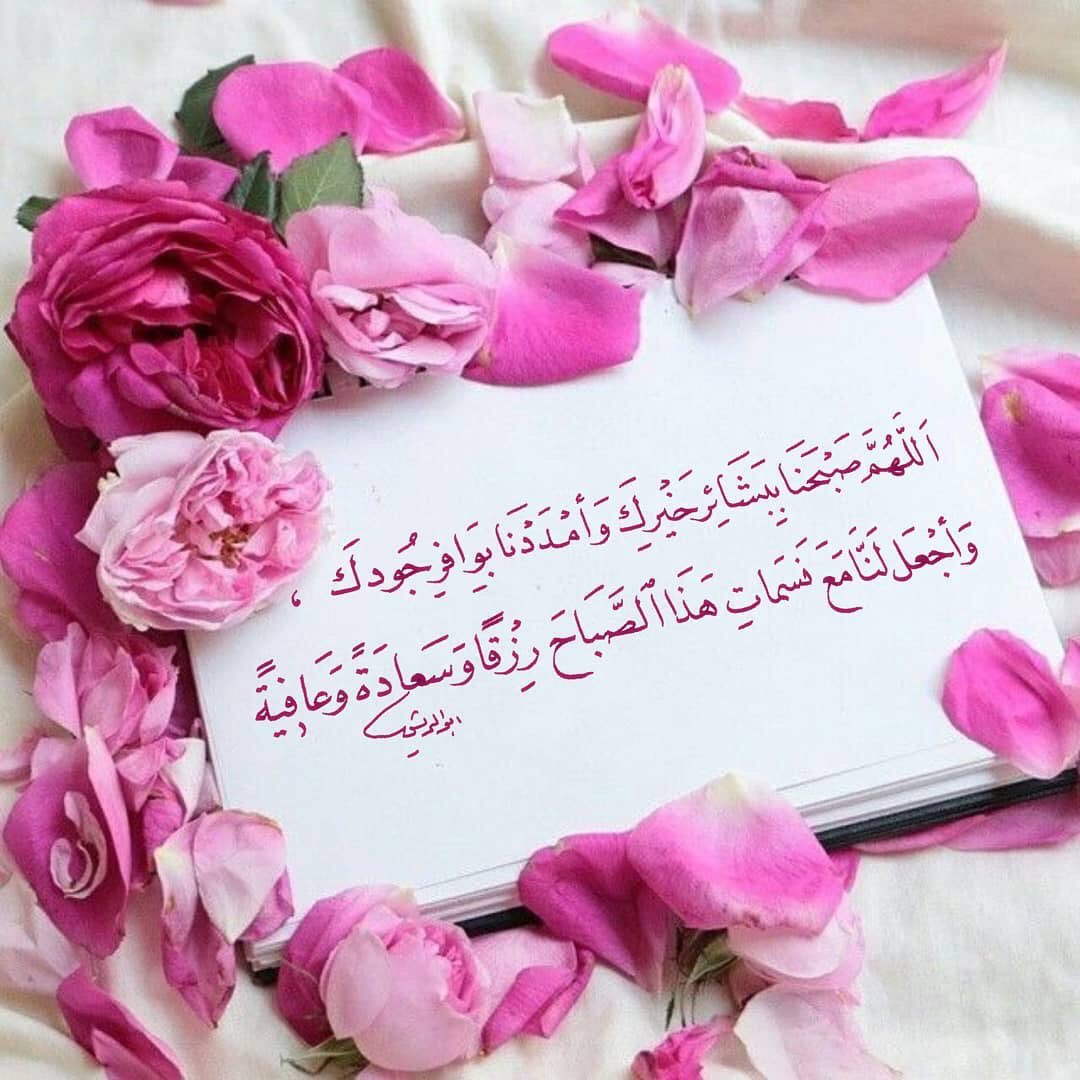 اَللَّهُمَّ صَبِّحْنَا بِبَشَائِرِ خَيْرِكَ وَأَمْدَدْنَا بِوَافِرِ جُودِكَ ،
وَأَجْعَل لَنَا مَعَ نَسَمَاتِ هَذَا ٱلصَّبَاحَ رِزْقًا وَسَعادَةً وَعَافِيَةً